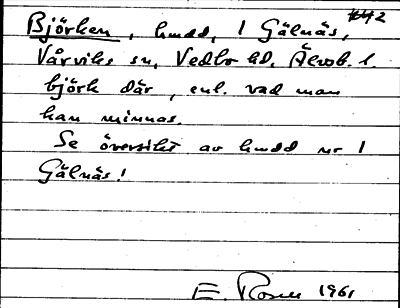 Björken, hmdd, 1 Gälnäs,
Vårviks sn, Vedbo hd, Älvsb. l.
björk där, enl. vad man
kan minnas.
Se översikt av hmdd nr 1
Gälnäs!
E. Rosen 1961